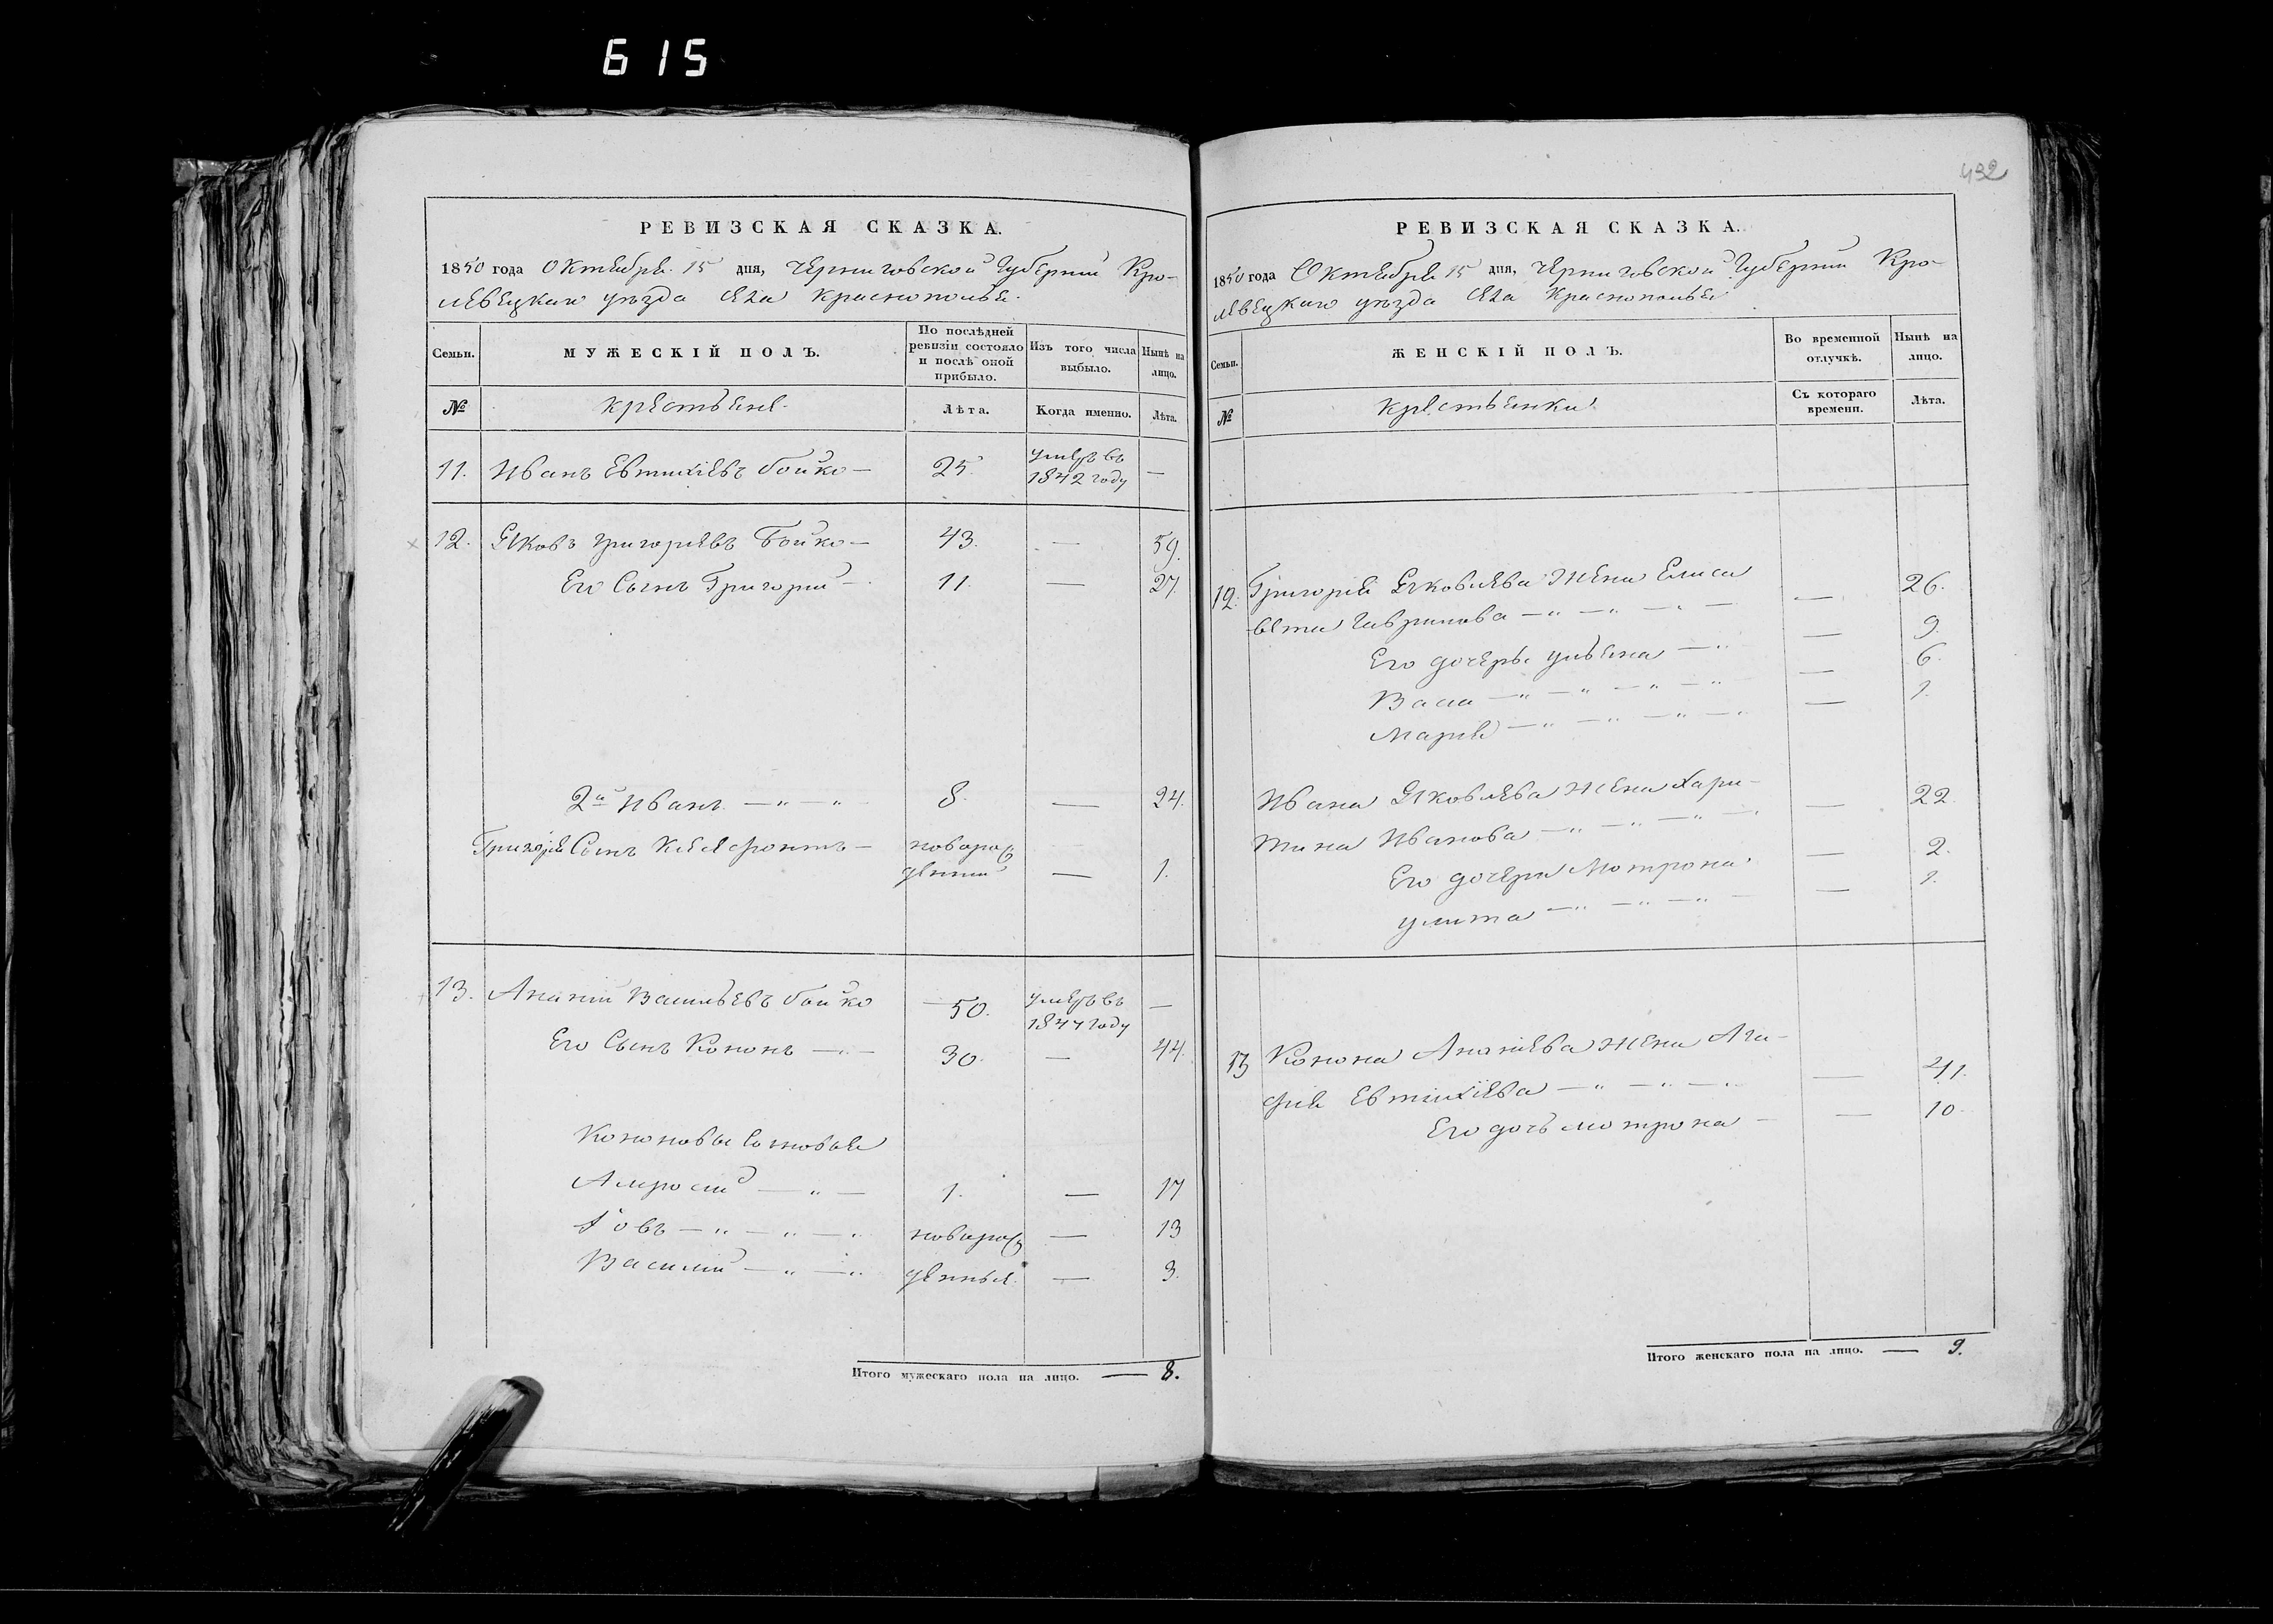 615
432
РЕВИЗСКАЯ СКАЗКА.
1850 года Октября 15 дня, Черниговской Губернии Кро-
левецкаго уезда села Краснополья.
Семьи.
МУЖЕСКІЙ ПОЛЪ.
По послѣдней
ревизіи состояло
и послѣ оной
прибыло.
Изъ того числа
выбыло.
Нынѣ на
лицо.
№
крестьяне
Лѣта.
Когда именно.
Лѣта.
11. Иванъ Евтихіевъ Бойко — 25. умеръ въ
1842 году —
12. Яковъ Григорьевъ Бойко — 43. — 59.
Его Сынъ Григорій — 11. — 27.
2й Иванъ — „ — „ 8. — 24.
Григорія Сынъ Ксенофонтъ — новорож
денный — 1.
13. Ананій Васильевъ Бойко — 50. умеръ въ
1847 году —
Его Сынъ Кононъ — „ — 30. — 44.
Кононовы сыновья
Амросій — „ — 1. — 17
Іовъ — „ — „ — „ новорож — 13
Василій — „ — „ денныя. — 3.
Итого мужескаго пола на лицо. — 8.
РЕВИЗСКАЯ СКАЗКА.
1850 года Октября 15 дня, Черниговской Губернии Кро-
левецкаго уезда села Краснополья
Семьи.
ЖЕНСКІЙ ПОЛЪ.
Во временной
отлучкѣ.
Нынѣ на
лицо.
№
крестьянки
Съ котораго
времени.
Лѣта.
12. Григорія Яковлева жена Елиса
вета Гаврилова — „ — „ — „ — — 26.
Его дочери Ульяна — „ — 9.
Васа — „ — „ — „ — „ — 6.
Марія — „ — „ — „ — „ — 1.
Ивана Яковлева жена Хари-
тина Иванова — „ — „ — „ — „ — 22.
Его дочери Мотрона — 2.
Улита — „ — „ — „ — — 1.
13 Конона Ананіева жена Ага-
фія Евтихіева — „ — „ — „ — 41.
Его дочь Мотрона — — 10.
Итого женскаго пола на лицо. — 9.